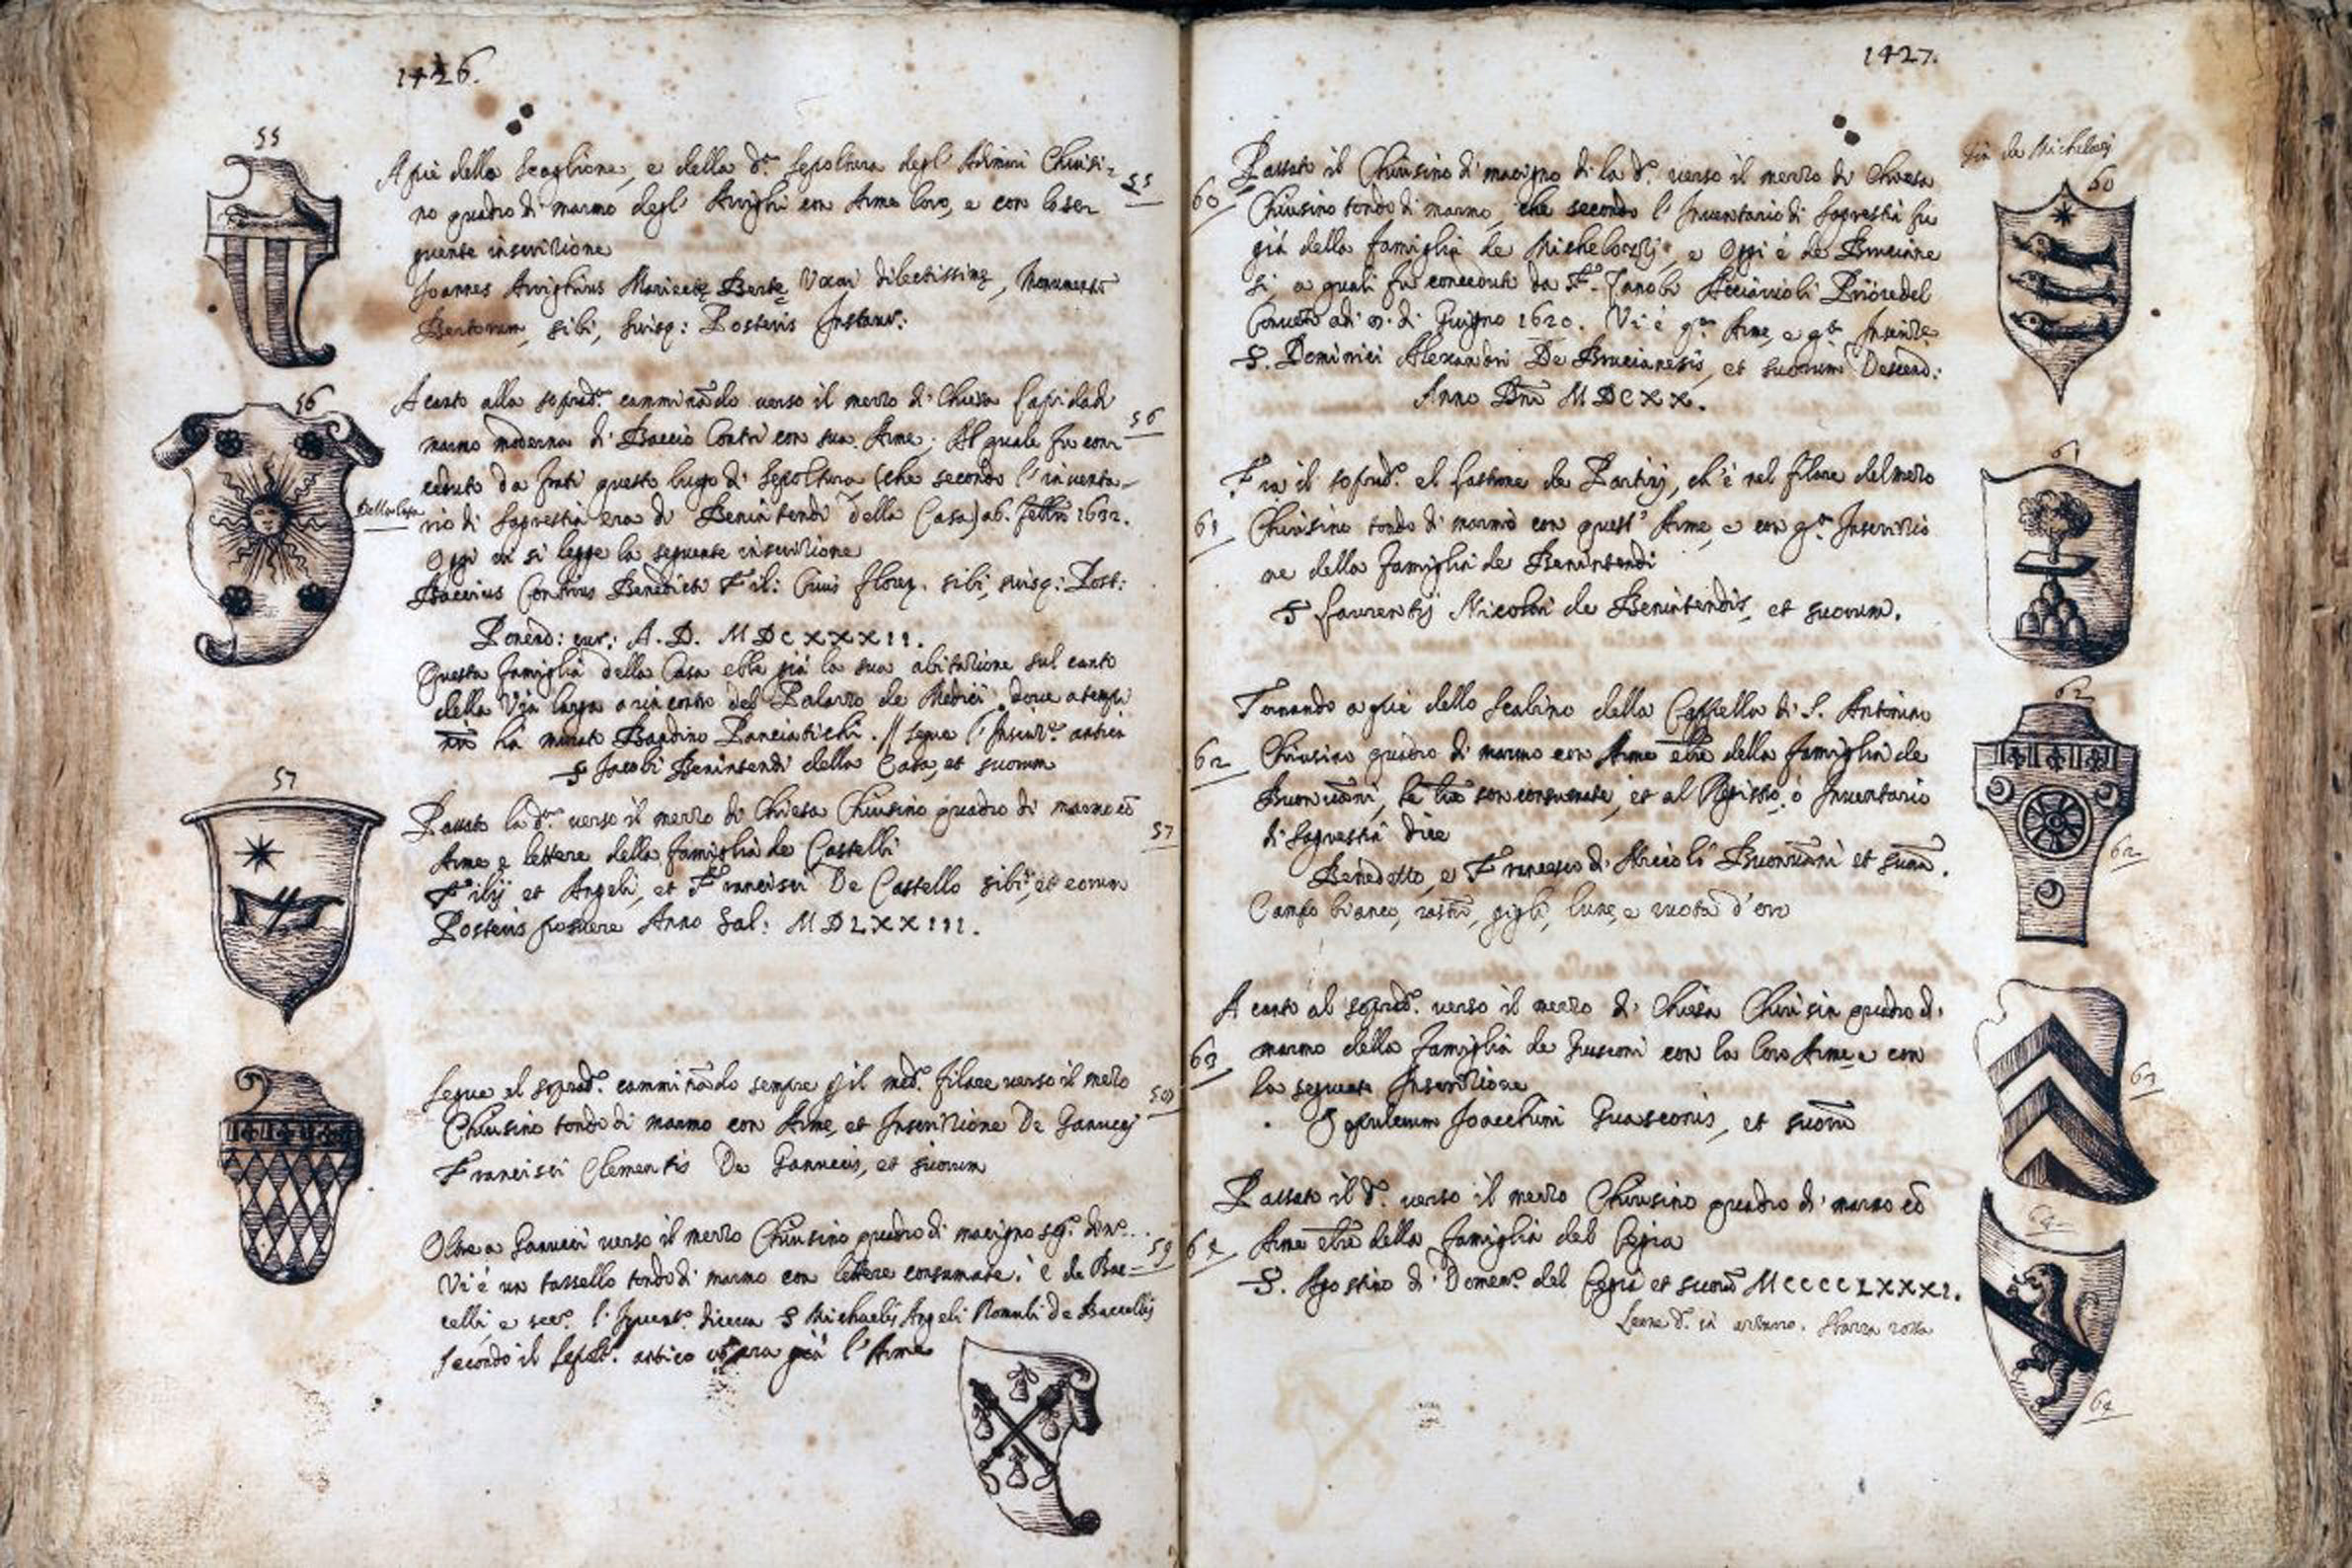 1426.
55
A piè dello Scaglione, e della d.ª Sepoltura degl' Adimari Chiusi-
no quadro di marmo degl' Arrighi con Arme loro, e con la se-
guente inscrizione
55
Joannes Arrighius Mariette Berte Uxori dilectissime, Monumento
Bertorum, sibi, suisq: Posteris Instaur:
56
A canto alla soprad.ª camminãdo verso il mezzo di Chiesa Lapida di
marmo moderna di Baccio Contri con sua Arme. Al quale fu con-
56
ceduto da frati questo luogo di Sepoltura (che secondo l'inventa-
Della Casa
rio di Sagrestia era di Benintendi della Casa) a 6. febb.º 1632.
Oggi vi si legge la seguente inscrizione
Baccius Contrius Benedicti Fil: Civis floren. sibi, suisq: Post:
Ponend: cur: A. D. MDCXXXII.
Questa famiglia della Casa ebbe già la sua abitazione sul canto
della Via larga a rincontro del Palazzo de Medici, dove a tempi
nri ha murato Bandino Panciatichi. // segue l'Inscriz.e antica
S Jacobi Benintendi della Casa, et suorum
57
Passato la d.ª verso il mezzo di Chiesa Chiusino quadro di marmo cõ
57
Arme e lettere della famiglia de Castelli
Filij et Angeli, et Francisci De Castello sibi, et eorum
Posteris posuere Anno Sal: MDLXXIII.
Segue al soprad.º camminãdo sempre p il med.º filare verso il mezo
58
Chiusino tondo di marmo con Arme, et Inscrizione De Ganucci
Francisci Clementis De Gannucis, et suorum
Oltre a Ganucci verso il mezzo Chiusino quadro di macigno
59
Vi è un tassello tondo di marmo con lettere consumate. è de Bac-
celli, e sec.º l'Invent.º diceva S Michaelis Angeli Romuli de Baccellis
Secondo il Sepolt. antico v'era già l'Arme
1427.
già de Michelozzi
60
Passato il Chiusino di macigno di la d.º verso il mezzo di Chiesa
60
Chiusino tondo di marmo, che secondo l'Inventario di Sagrestia fu
già della famiglia de Michelozzi, e Oggi è de Bruciane
si, a quali fu conceduto da F. Zanobi Acciaiuoli Priore del
Convento adi di Giugno 1620. Vi è q.ta Arme, e q.ta Inscriz.e
S. Dominici Alexandri De Brucianesis, et suorum Descend:
Anno Dni MDCXX.
61
Fra il soprad.º el lastrone de Partini, ch'è nel filare del mezo
61
Chiusino tondo di marmo con quest' Arme, e con q.ta Inscrizio
ne della famiglia de Benintendi
S Laurentij Nicolai de Benintendis, et suorum.
62
Tornando a piè dello Scalino della Cappella di S. Antonino
62
Chiusino quadro di marmo con Arme della famiglia de
Buonvãni, le lre son consumate, et al Registro, ò Inventario
di Sagrestia dice
62
Benedetto, e Francesco di Niccolò Buonvãni et suor.
Campo bianco, rastri, gigli, lune, e ruota d'oro
A canto al soprad.º verso il mezzo di Chiesa Chiusin quadro di
63
marmo della famiglia de Guasconi con la loro Arme e con
63
la seguente Inscrizione
Sepulcrum Joacchini Guasconis, et suorũ
Passato il d.º verso il mezzo Chiusino quadro di marmo cõ
64
64
Arme della famiglia del Cegia
S. Agostino di Domen.º del Cegia et suorũ MCCCCLXXXI.
Leone d. in azzurro. Sbarra rossa
64